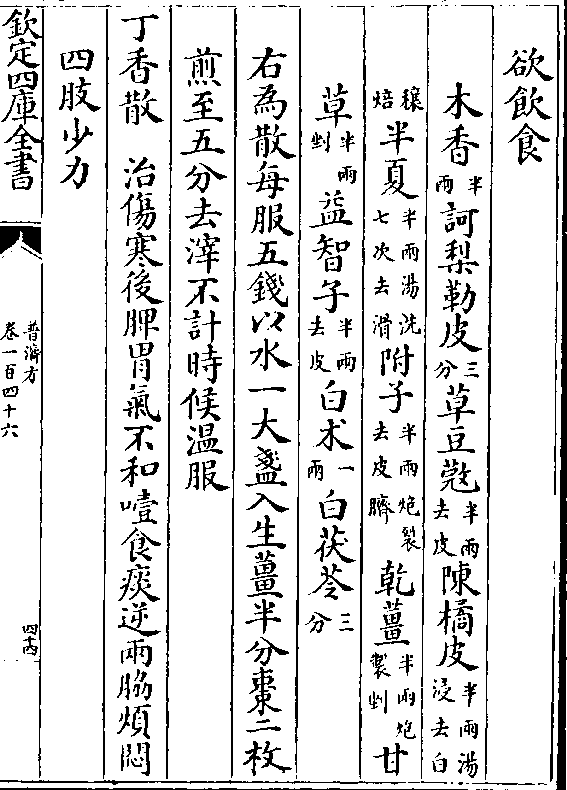 欲飲食
木香半兩訶梨勒皮三分草豆蔻半兩去皮陳橘皮半兩湯浸去白
穰焙半夏半兩湯洗七次去滑附子半兩炮裂去皮臍乾薑半兩炮製剉甘
草半兩剉益智子半兩去皮白术一兩白茯苓三分
右為散每服五錢以水一大盞入生薑半分棗二枚
煎至五分去滓不計時候温服
丁香散　治傷寒後脾胃氣不和噎食痰逆兩脇煩悶
四肢少力
欽定四庫全書
普濟方
卷一百四十六
四十四